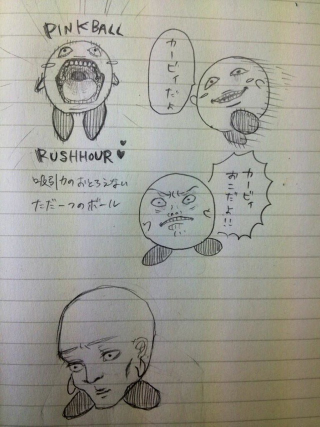 PINKBALL
カービィだよ
RUSHHOUR♥
吸引力のおとろえない
ただ一つのボール
カービィ
おこだよ!!